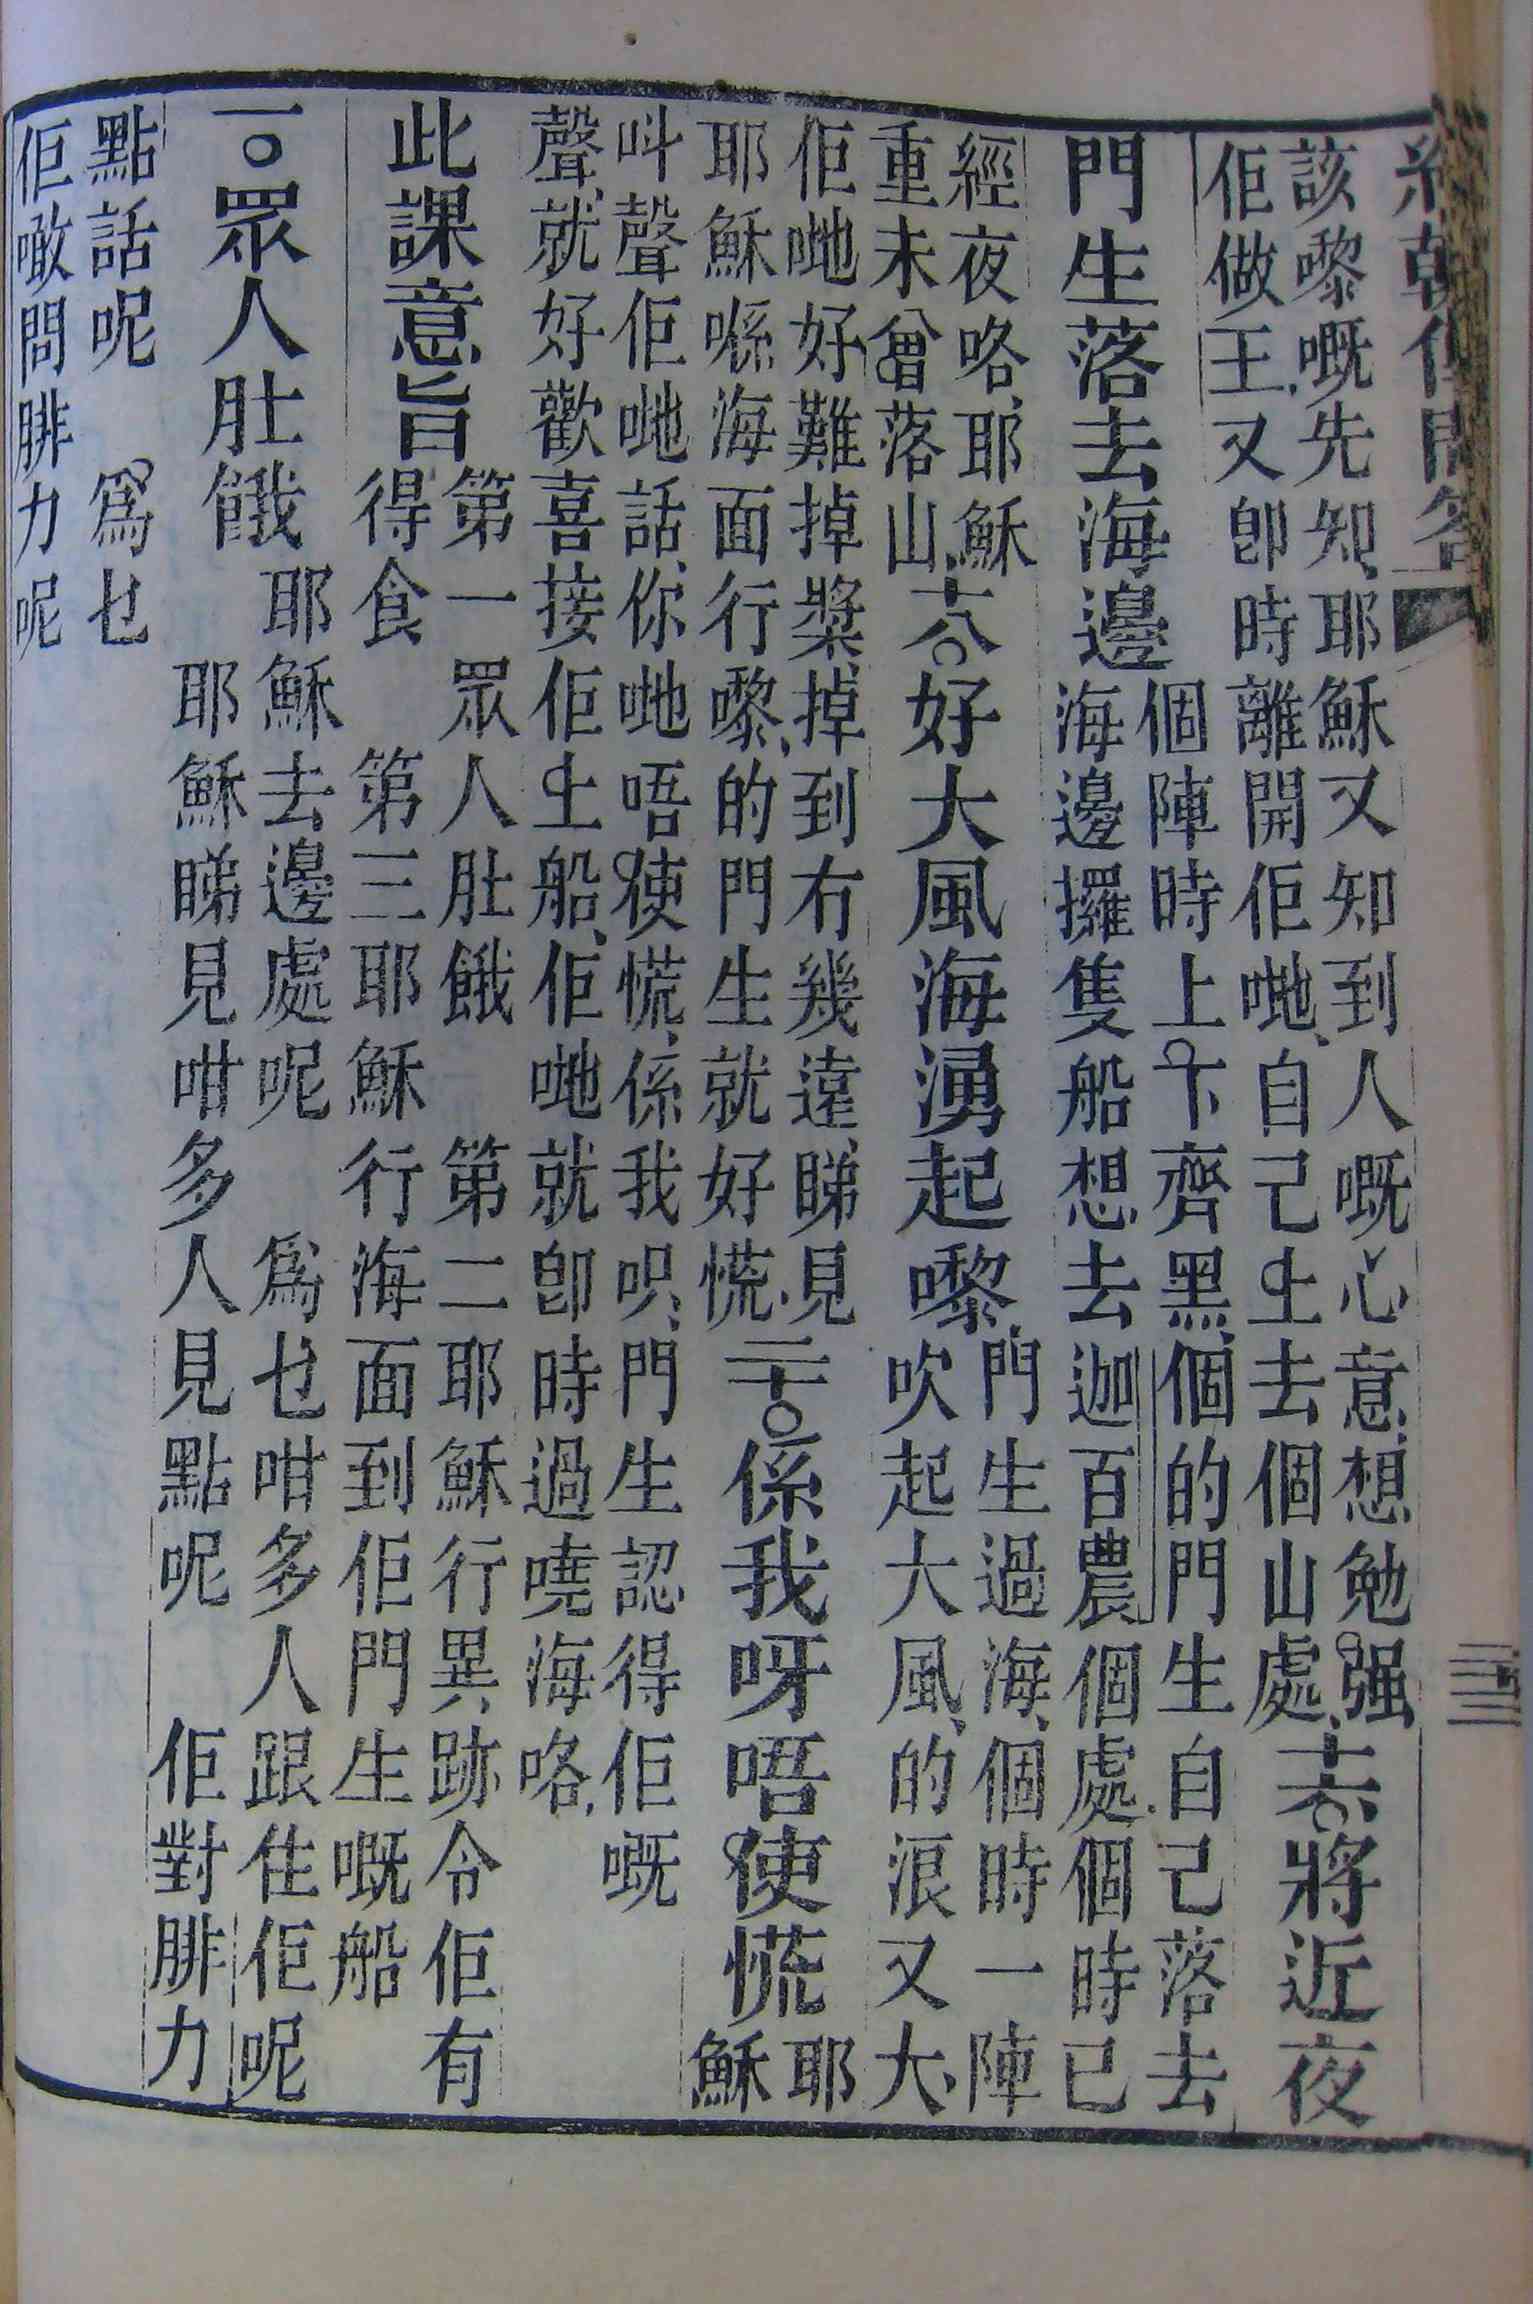 該嚟嘅先知、耶穌又知到人嘅心意、想勉强
佢做王、又卽時離開佢哋、自己上去個山處、
十六○將近夜
門生落去海邊
個陣時上下齊黑、個的門生自己落去
海邊攞隻船想去迦百農個處、個時已
經夜咯、耶穌
重未曾落山、
十八○好大風海湧起嚟、
門生過海、個時一陣
吹起大風、的浪又大、
佢哋好難掉槳、掉到冇幾遠睇見
耶穌喺海面行嚟、的門生就好慌、
二十○係我呀唔使慌
耶
穌
叫聲佢哋話、你哋唔使慌、係我呮、門生認得佢嘅
聲、就好歡喜接佢上船、佢哋就卽時過嘵海咯、
此課意旨
第一 眾人肚餓 第二耶穌行異跡令佢有
得食 第三耶穌行海面到佢門生嘅船
一○眾人肚餓
耶穌去邊處呢 爲乜咁多人跟住佢呢
耶穌睇見咁多人見點呢 佢對腓力
點話呢 爲乜
佢噉問腓力呢